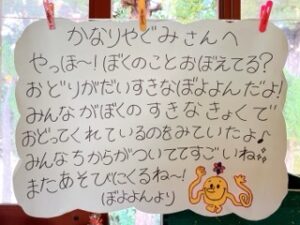 かなりやぐみさんへ
やっほ～!ぼくのことおぼえてる?
おどりがだいすきなぼよよんだよ!
みんながぼくのすきなきょくで
おどってくれているのをみていたよ♪
みんなちからがついててすごいね!!
またあそびにくるね～!
ぼよよんより